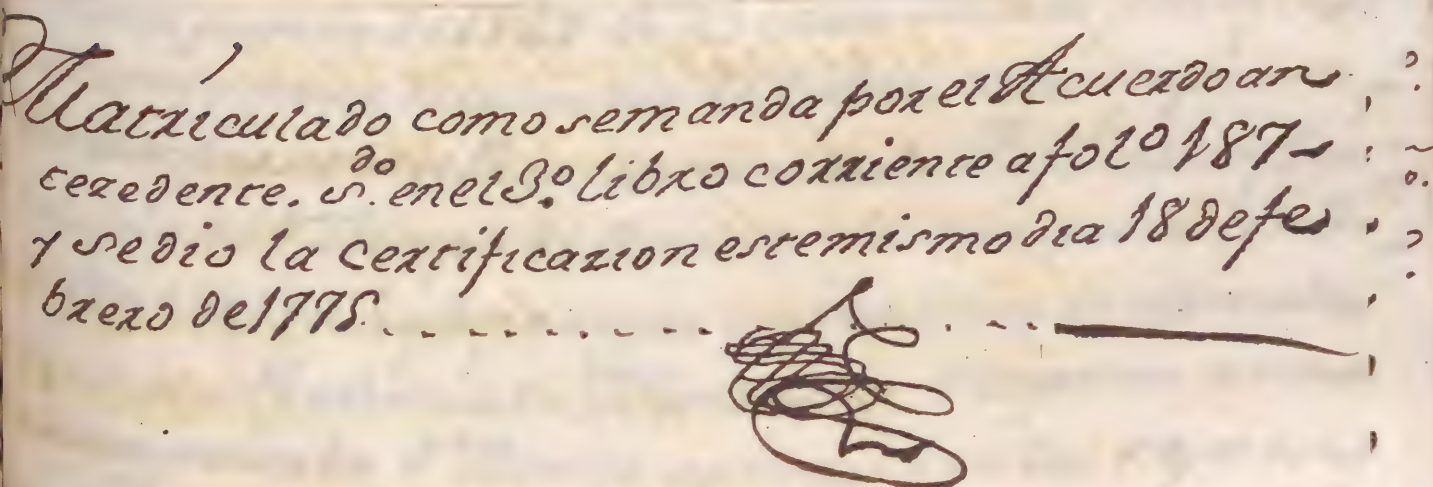 Matriculado como se manda por el Acuerdo an
tecedente. en el 3º. libro corriente a folº 187
y se dio la Certificazion este mismo dia 18 de fe
brero de 1775